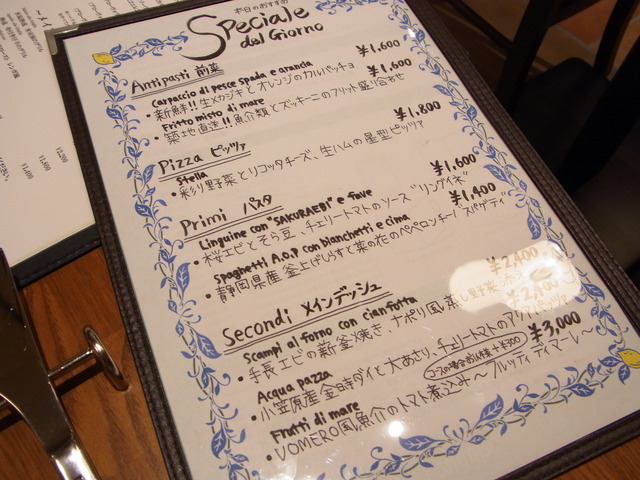 本日のおすすめ
Speciale
del Giorno
Antipasti 前菜
Carpaccio di pesce spada e arancia ¥1,600
・新鮮!! 生メカジキとオレンジのカルパッチョ
Fritto misto di mare ¥1,600
・築地直送!! 魚介類とズッキーニのフリット盛り合わせ
Pizza ピッツァ
Stella ¥1,800
・彩り野菜とリコッタチーズ、生ハムの星型ピッツァ
Primi パスタ
Linguine con "SAKURAEBI" e fave ¥1,600
・桜エビとそら豆、チェリートマトのソース "リングイネ"
Spaghetti A.O.P con bianchetti e cima ¥1,400
・静岡県産 釜上げしらすと菜の花のペペロンチーノ スパゲティ
Secondi メインディッシュ
Scampi al forno con cianfrotta ¥2,400
・手長エビの薪釜焼き、ナポリ風蒸し野菜
Acqua pazza
・小笠原産金目ダイと大あさり、チェリートマトのアクアパッツァ
Frutti di mare ¥3,000
コースの場合お1人様+¥300
・VOMERO風魚介のトマト煮込み〜フルッティ ディ マーレ〜